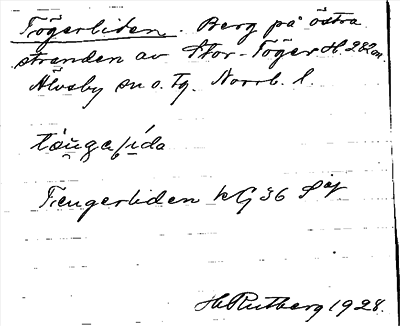 Tögerliden. Berg på östra
stranden av Stor-Töger H. 282 m.
Älvsby sn o. tg. Norrb. l.
Tiengerliden kG 36 Säf
H Rutberg 1928.